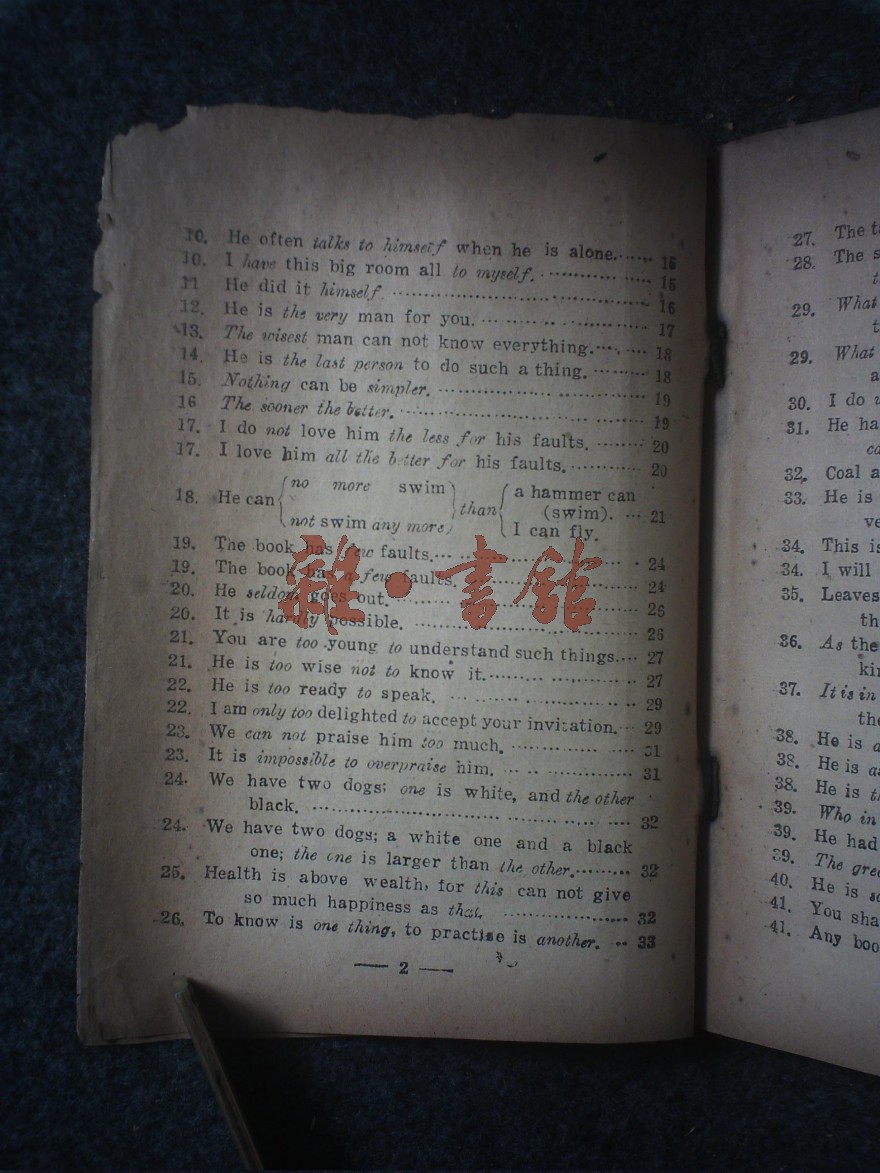 10. He often talks to himself when he is alone....... 15
10. I have this big room all to myself. ................ 15
11 He did it himself. .................................... 16
12. He is the very man for you. .................... 17
13. The wisest man can not know everything........ 18
14. He is the last person to do such a thing. ......... 18
15. Nothing can be simpler. ......................... 19
16 The sooner the better. ............................ 19
17. I do not love him the less for his faults. ........ 20
17. I love him all the better for his faults. ........... 20
no more swim a hammer can
18. He can than (swim). ... 21
not swim any more I can fly.
19. The book has few faults. ......................... 24
19. The book has a few faults. ...................... 24
20. He seldom goes out. ............................. 26
20. It is hardly possible. ............................ 26
21. You are too young to understand such things.... 27
21. He is too wise not to know it. .................... 27
22. He is too ready to speak. ........................ 29
22. I am only too delighted to accept your invitation. .. 29
23. We can not praise him too much. ................ 31
23. It is impossible to overpraise him. ............... 31
24. We have two dogs; one is white, and the other
black. ................................................ 32
24. We have two dogs; a white one and a black
one; the one is larger than the other. ......... 32
25. Health is above wealth, for this can not give
so much happiness as that. .................... 32
26. To know is one thing, to practise is another. .. 33
— 2 —
雜·書館
27. The
28. The s
t
29. What
t
29. What
a
30. I do
31. He ha
ca
32. Coal a
33. He is
ve
34. This is
34. I will
35. Leaves
th
36. As the
kin
37. It is in
the
38. He is a
38. He is as
38. He is th
39. Who in
39. He had
39. The grea
40. He is so
41. You sha
41. Any boo